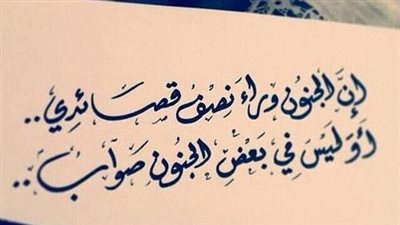 إِنَّ الجنون وراءَ نِصْفِ قصَائدِي..
أَوَليْسَ فِي بَعْضِ الجنون صَوابُ..